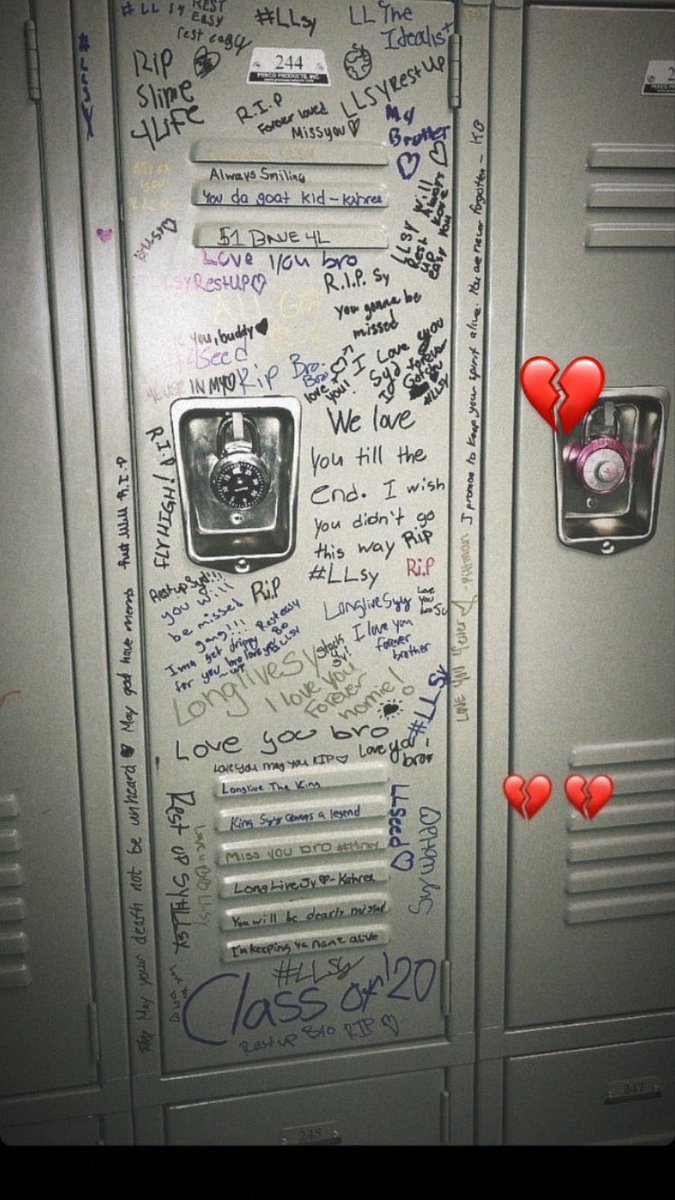 # LL sy
REST
EASY
rest easy
#LLSY
LL The
Idealist
244
PENCO PRODUCTS, INC.
RIP
Slime
4Life
R.I.P
Forever loved
Miss you
LLSY Rest Up
My
Brother
Always Smiling
You da goat kid - Kahree
51 Dave 4L
Love you bro
LLSY will
Rest
up
easy
R.I.P. Sy
you gonna be
missed
Rest Up
you, buddy
IN MY
Rip
Bro
love
you!
I Love you
Syd
Forever
#LLSY
We love
you till the
end. I wish
you didn't go
this way
RIP
#LLSY
R.I.P
R.I.P
FLY HIGH!
Rest up Syd!!!
you will
be missed
gang!!!
Imma get drippy
for you bro love you
Rest easy
Bro
#LLSY
RIP
Longlive Syy
Love
You
I love you
forever
brother
Longlive Sy
I love you
Forever
homie!
#LLSY
Love you bro
Love you
bro
Love you may you RIP
Longlive The King
King Syy always a legend
Miss you bro
Long Live Sy - Kahree
You will be dearly missed
I'm keeping ya name alive
Rest up Sy #LLSY
LLSeed
Syy World
#LLSY
Class of '20
Rest up Bro RIP
May your death not be unheard May god have mercy that Will R.I.P
I promise to keep your spirit alive. You are never forgotten - KG
245
247